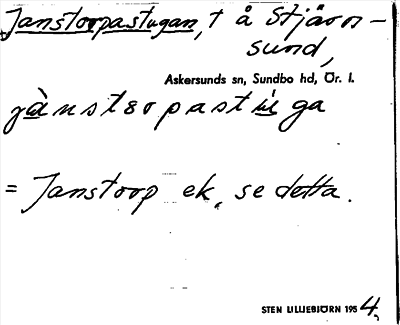 Janstorpastugan, t å Stjärn-
sund,
Askersunds sn, Sundbo hd, Ör. l.
jànstørpastúga
= Janstorp ek, se detta.
STEN LILLIEBJÖRN 1954.